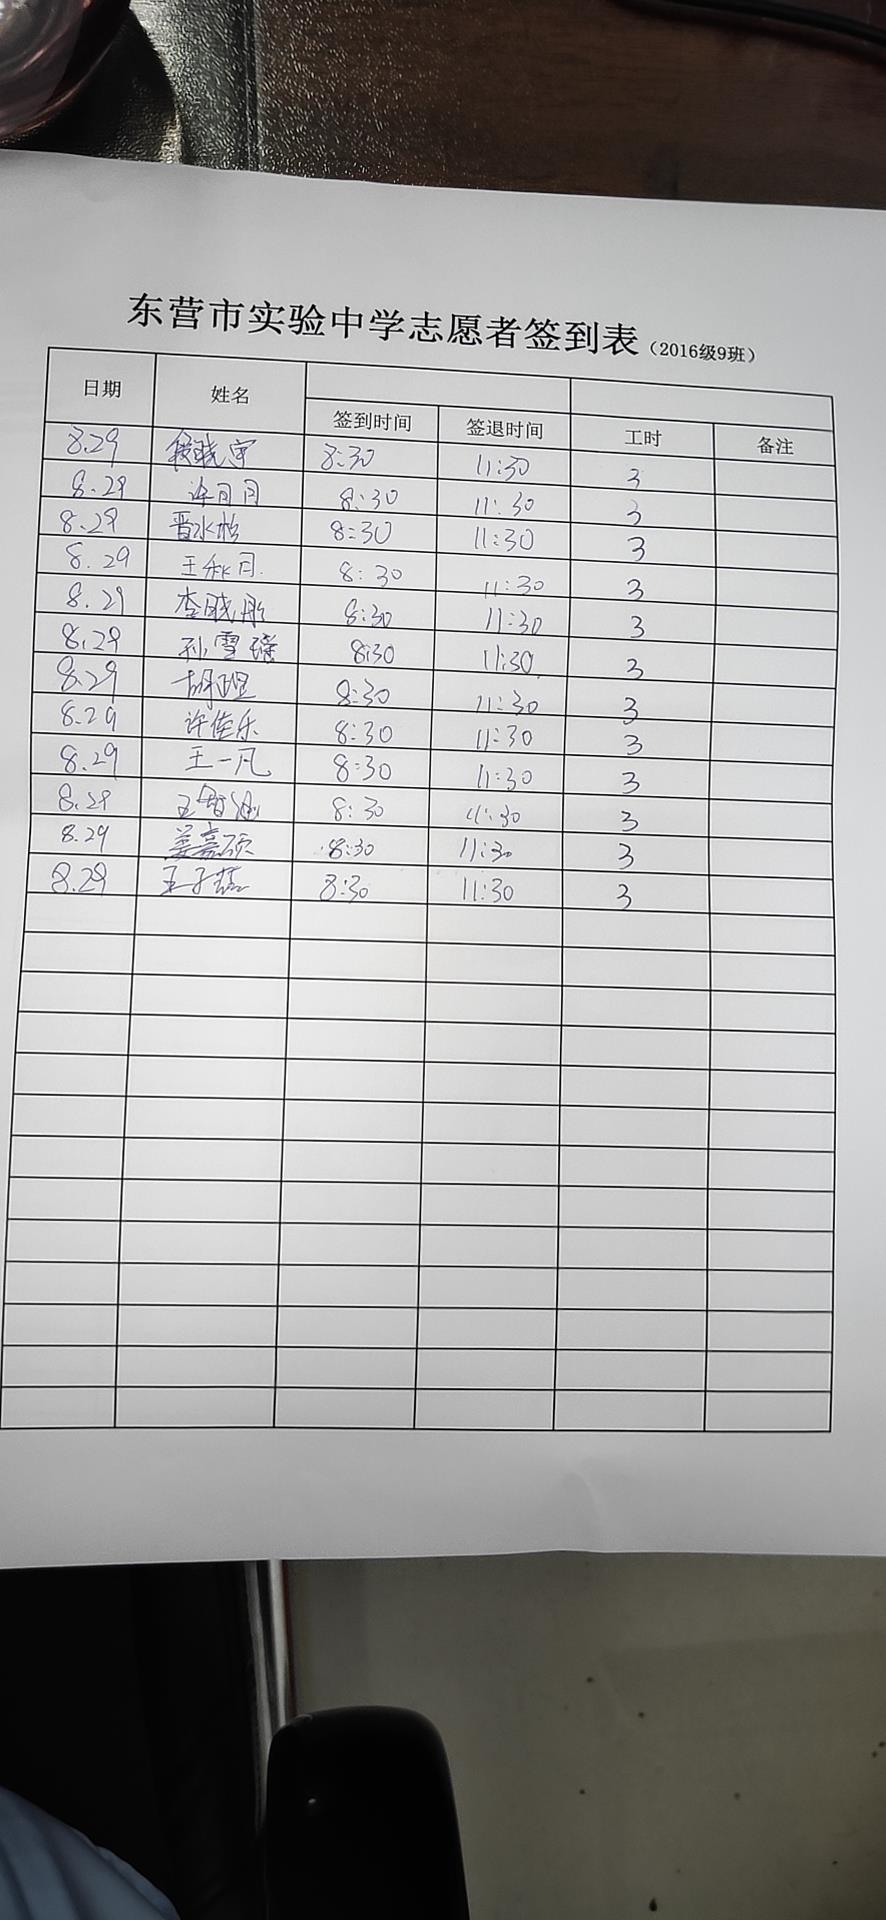 东营市实验中学志愿者签到表（2016级9班）
日期 姓名 签到时间 签退时间 工时 备注
8.29 段晓宇 8:30 11:30 3
8.29 许月月 8:30 11:30 3
8.29 晋水柏 8:30 11:30 3
8.29 王秋月 8:30 11:30 3
8.29 李晓彤 8:30 11:30 3
8.29 孙雪瑶 8:30 11:30 3
8.29 8:30 11:30 3
8.29 许佳乐 8:30 11:30 3
8.29 王一凡 8:30 11:30 3
8.29 8:30 11:30 3
8.29 姜嘉硕 8:30 11:30 3
8.29 8:30 11:30 3